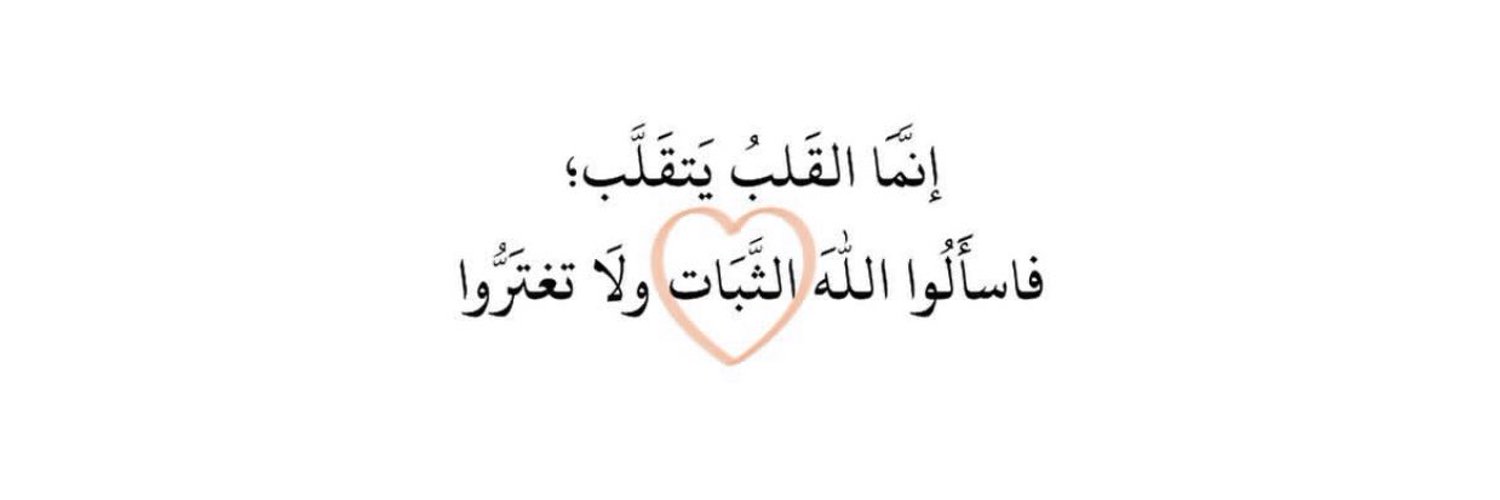 إنَّمَا القَلبُ يَتقَلَّب؛
فاسأَلُوا اللّٰهَ الثَّبَات ولَا تغتَرُّوا